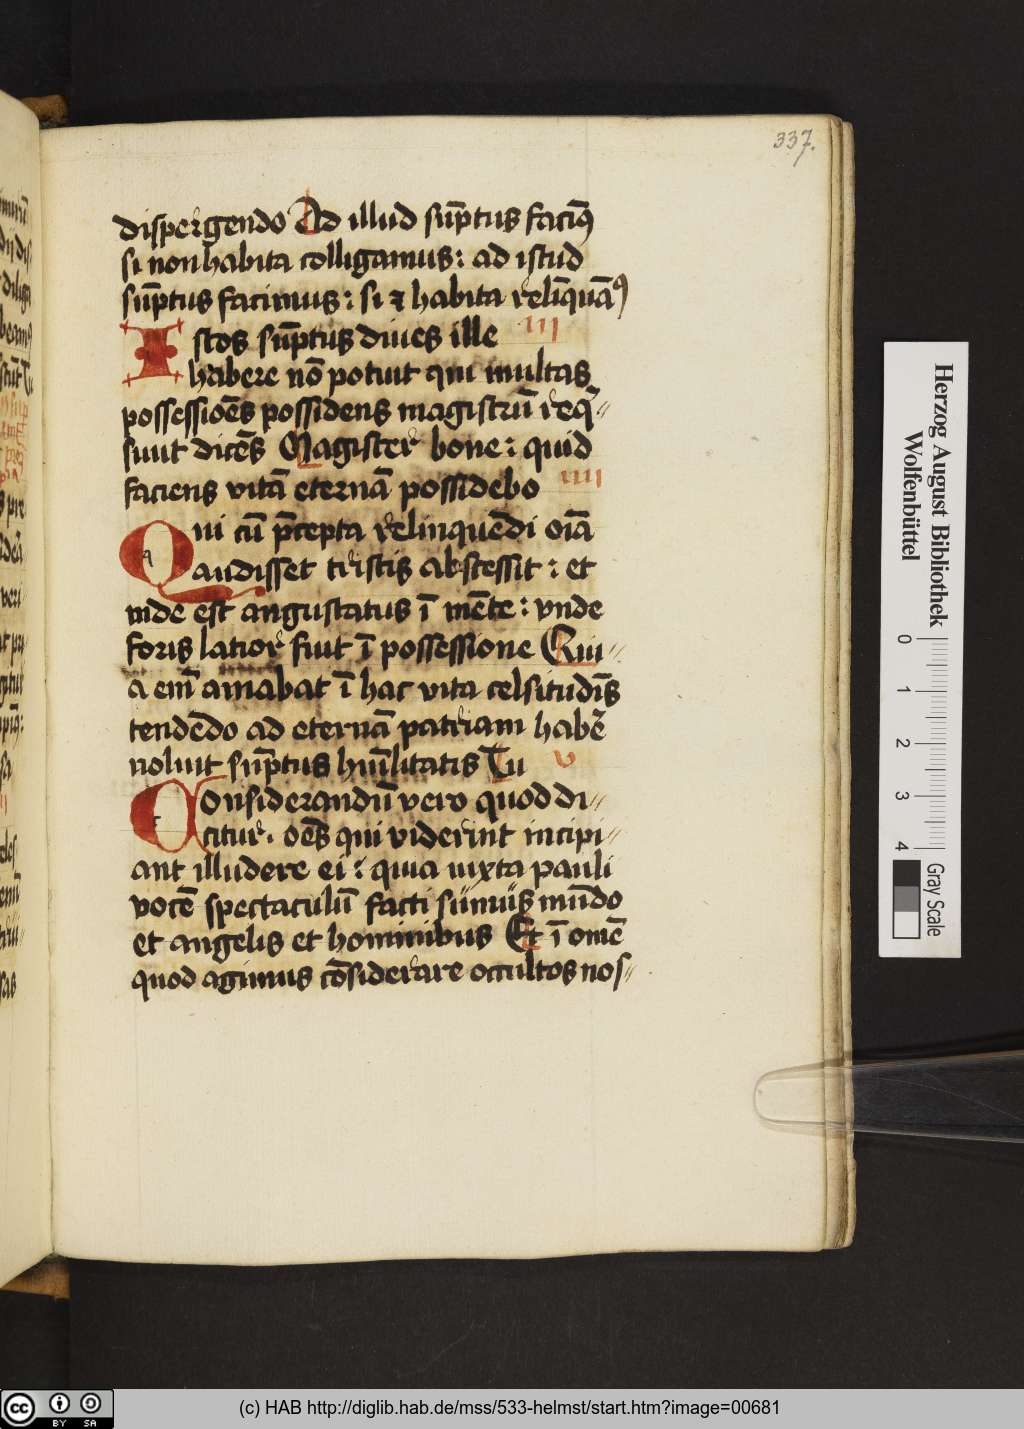 337.
dispergendo Ad illud sūptus faciꝰ
si non habita colligamus: ad istud
sūptus facimus: si ⁊ habita relīquāꝰ
Istos sūptus diues ille III
habere nō potuit qui multas
possessiōes possidens magistrū req̄=
siuit dicēs Magister bone: quid
faciens vitā eternā possidebo IIII
Qui cū p̄cepta relinquēdi oīa
audisset tristis abscessit: et
inde est angustatus ī mēte: vnde
foris latior fuit ī possessione Qui=
a em̄ amabat ī hac vita celsitudīs
tendēdo ad eternā patriam habē
noluit sūptus humīlitatis Tu V
Considerandū vero quod di=
citur. oēs qui viderint incipi=
ant illudere ei: quia iuxta pauli
vocē spectaculū facti sumus mūdo
et angelis et hominibus Et ī omē
quod agimus cōsiderare occultos nos=
Herzog August Bibliothek
Wolfenbüttel
0 1 2 3 4
Gray Scale
cc BY SA
(c) HAB http://diglib.hab.de/mss/533-helmst/start.htm?image=00681